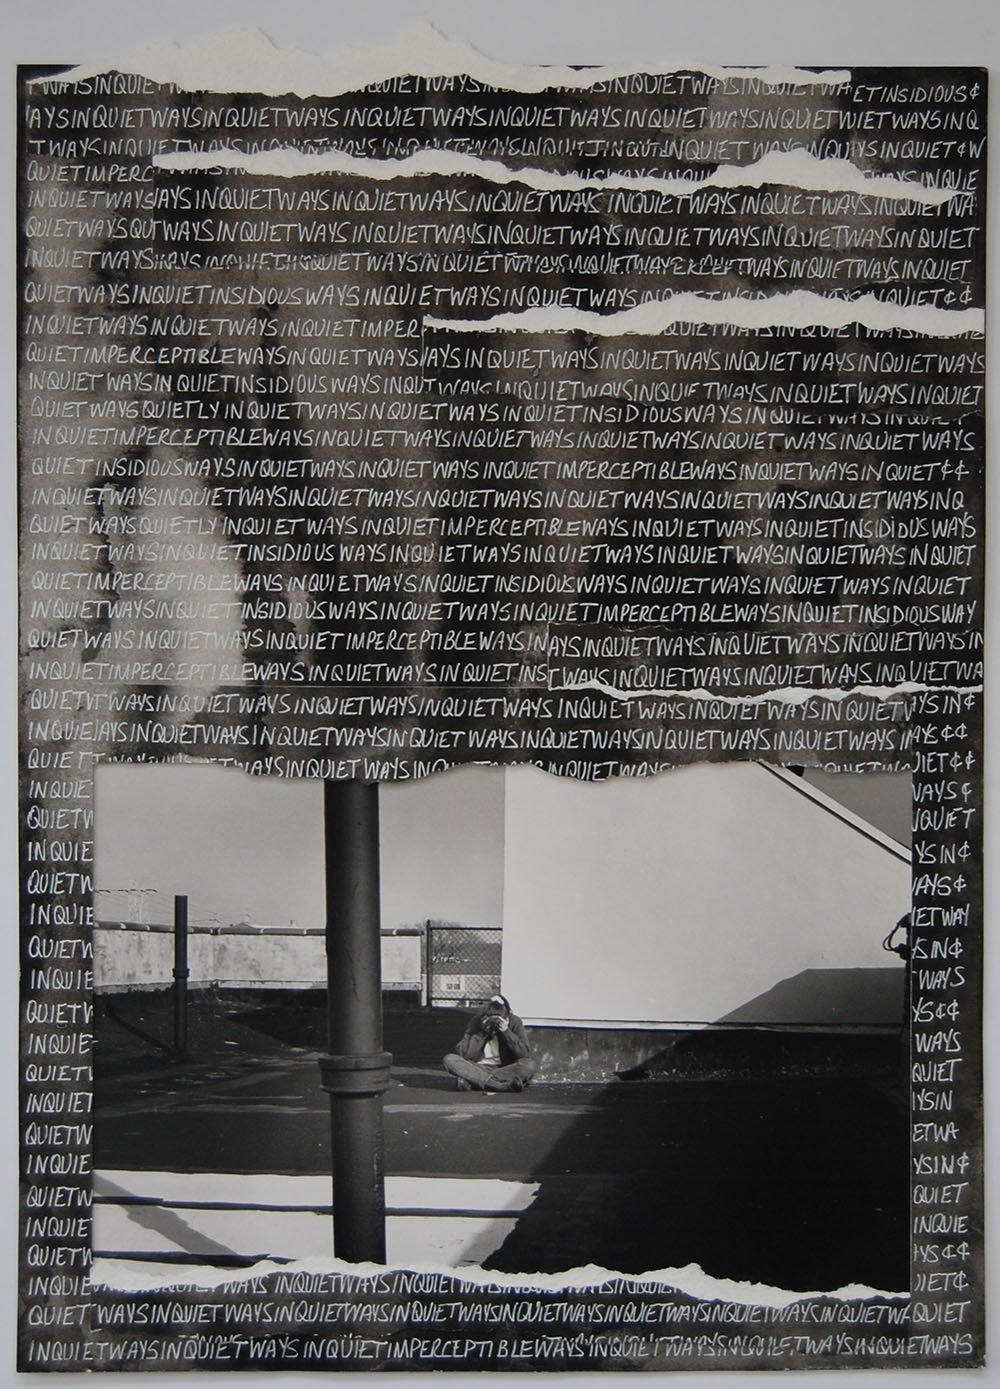 TWAYSINQUIETWAYSINQUIETWAYSINQUIETWAYSINQUIETWAETINSIDIOUS¢
AYSINQUIETWAYSINQUIETWAYSINQUIETWAYSINQUIETWAYSINQUIETWIETWAYSINQ
TWAYSINQUIETWAYS WAYSINQUIET¢W
QUIETIMPERC
INQUIETWAYSAYSINQUIETWAYSINQUIETWAYSINQUIETWAYSINQUIETWAYSINQUIETWA
QUIETWAYSQUTWAYSINQUIETWAYSINQUIETWAYSINQUIETWAYSINQUIETWAYSINQUIET
INQUIETWAYS
QUIETWAYSINQUIETINSIDIOUSWAYSINQUIETWAYSINQUIETWAYSINQUIET INQUIET¢¢
INQUIETWAYSINQUIETWAYSINQUIETIMPER
QUIETIMPERCEPTIBLEWAYSINQUIETWAYSAYSINQUIETWAYSINQUIETWAYSINQUIETWAYSINQUIETWAYS
INQUIETWAYSINQUIETINSIDIOUSWAYSINQUTWAYS INQUIETWAYSINQUIETWAYSINQUIETWAYSINQUIET
QUIETWAYSQUIETLYINQUIETWAYSINQUIETWAYSINQUIETINSIDIOUSWAYSINQUIETWAYSINQUIET
INQUIETIMPERCEPTIBLEWAYSINQUIETWAYSINQUIETWAYSINQUIETWAYSINQUIETWAYSINQUIETWAYS
QUIETINSIDIOUSWAYSINQUIETWAYSINQUIETWAYSINQUIETIMPERCEPTIBLEWAYSINQUIETWAYSINQUIET¢¢
INQUIETWAYSINQUIETWAYSINQUIETWAYSINQUIETWAYSINQUIETWAYSINQUIETWAYSINQUIETWAYSINQ
QUIETWAYSQUIETLYINQUIETWAYSINQUIETIMPERCEPTIBLEWAYSINQUIETWAYSINQUIETINSIDIOUSWAYS
INQUIETWAYSINQUIETINSIDIOUSWAYSINQUIETWAYSINQUIETWAYSINQUIETWAYSINQUIETWAYSINQUIET
QUIETIMPERCEPTIBLEWAYSINQUIETWAYSINQUIETINSIDIOUSWAYSINQUIETWAYSINQUIETWAYSINQUIET
INQUIETWAYSINQUIETINSIDIOUSWAYSINQUIETWAYSINQUIETIMPERCEPTIBLEWAYSINQUIETINSIDIOUSWAY
QUIETWAYSINQUIETWAYSINQUIETIMPERCEPTIBLEWAYSINAYSINQUIETWAYSINQUIETWAYSINQUIETWAYSIN
INQUIETIMPERCEPTIBLEWAYSINQUIETWAYSINQUIETINSTWAYSINQUIETWAYSINQUIETWAYSINQUIETWA
QUIETVTWAYSINQUIETWAYSINQUIETWAYSINQUIETWAYSINQUIETWAYSINQUIETWAYSINQUIETWAYSIN¢
INQUIEAYSINQUIETWAYSINQUIETWAYSINQUIETWAYSINQUIETWAYSINQUIETWAYSINQUIETWAYSINAYS¢¢
QUIET WAYSINQUIETWAYSINQUIET UIET¢¢
INQUIE WAYS¢
QUIETW NQUIET
INQUIE YSIN¢
QUIETW AYS¢
INQUIE IETWAY
QUIETW YSIN¢
INQUIE WAYS
QUIETW YS¢¢
INQUIE WAYS
QUIETV QUIET
INQUIET YSIN
QUIETW ETWA
INQUIE YSIN¢
QUIETW QUIET
INQUIE INQUIE
QUIETW YS¢¢
INQUIE WAYSINQUIETWAYSINQUIETWAYSINQUIETWAYSINQUIET UIET¢
QUIETWAYSINQUIETWAYSINQUIETWAYSINQUIETWAYSINQUIETWAYSINQUIETWAYSINQUIETWAQUIET
INQUIETWAYSINQUIETWAYSINQUIETIMPERCEPTIBLEWAYSINQUIETWAYSINQUIETWAYSINQUIETWAYS